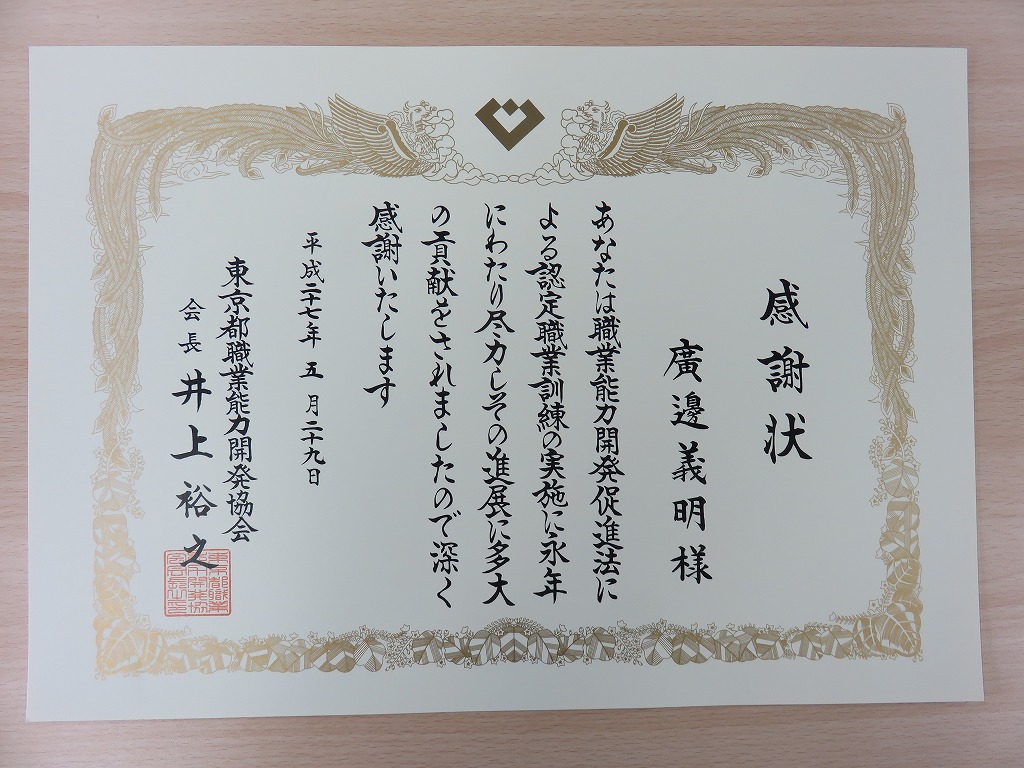 感謝状
廣邊義明様
あなたは職業能力開発促進法に
よる認定職業訓練の実施に永年
にわたり尽力しその進展に多大
の貢献をされましたので深く
感謝いたします
平成二十七年五月二十九日
東京都職業能力開発協会
会長 井上裕之